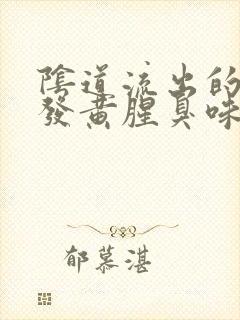 陰道流出的
發黃腥臭味
郁慕湛